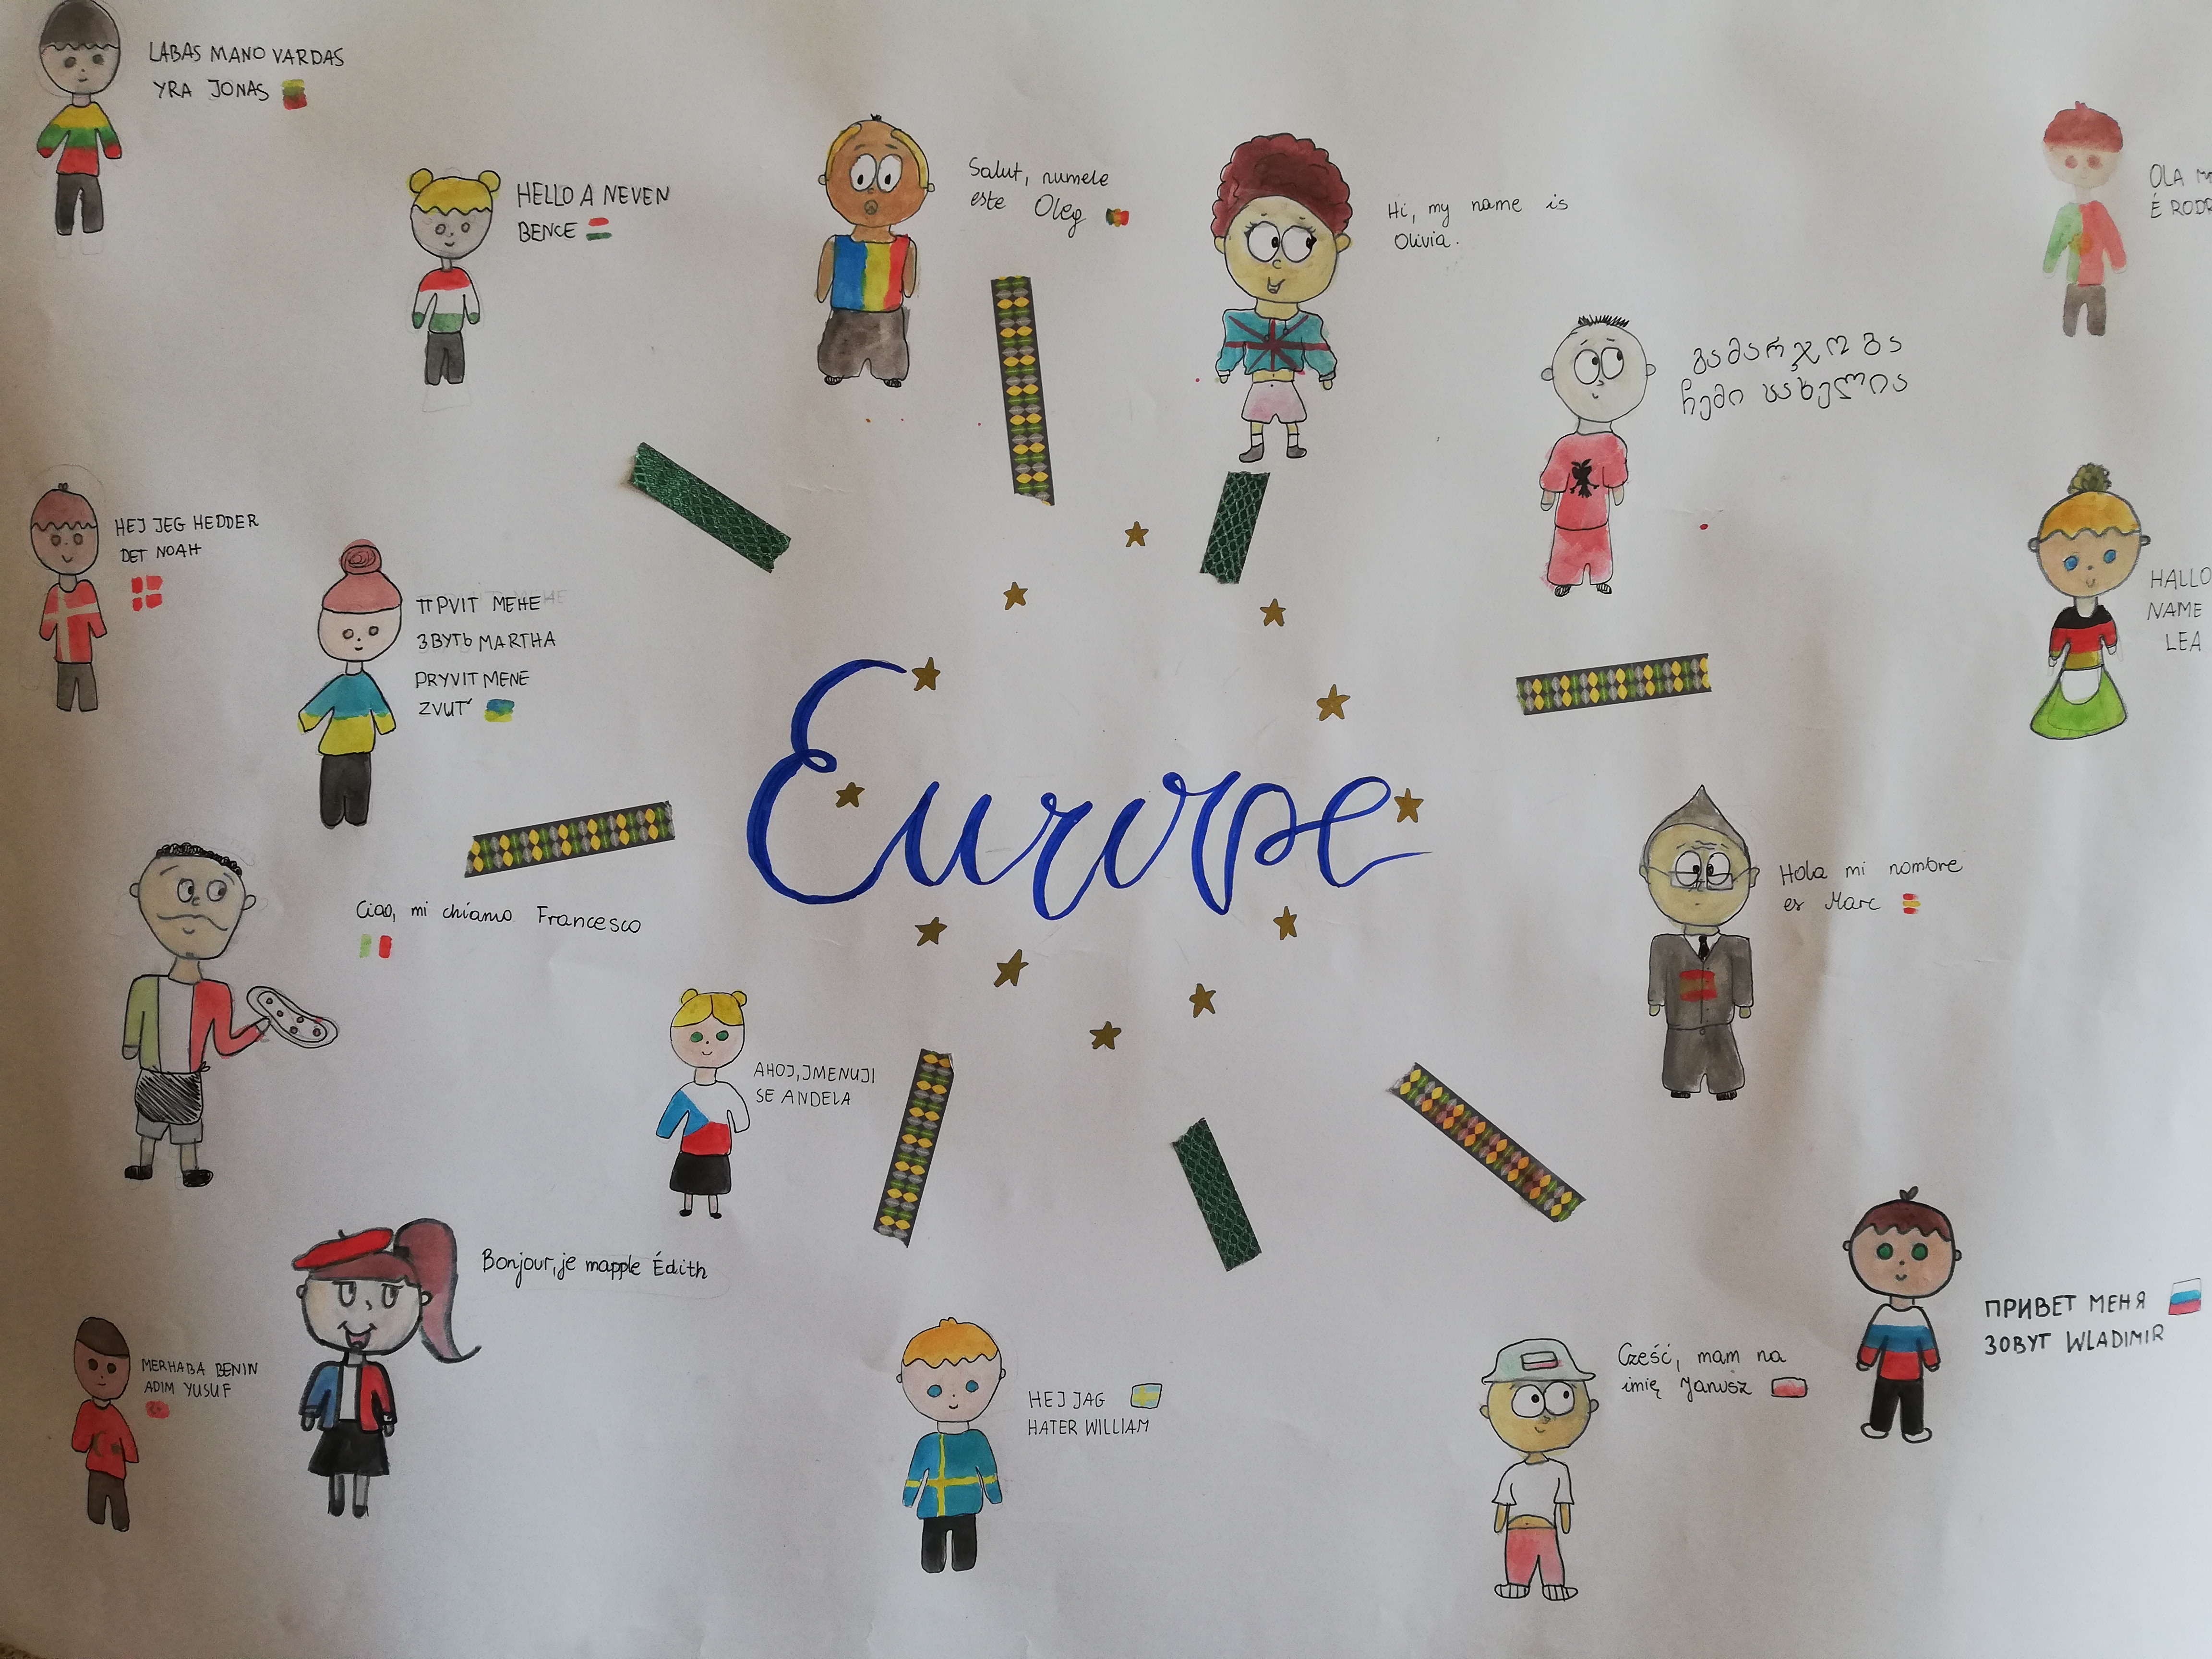 LABAS MANO VARDAS
YRA JONAS
HELLO A NEVEN
BENCE
Salut, numele
este Oleg
Hi, my name is
Olivia.
OLA
É
გამარჯობა
ჩემი სახელია
HEJ JEG HEDDER
DET NOAH
ПРVIT МЕНЕ
ЗВУТЬ MARTHA
PRYVIT MENE
ZVUT'
HALLO
NAME
LEA
Europe
Ciao, mi chiamo Francesco
Hola mi nombre
es Marc
AHOJ, JMENUJI
SE ANDELA
Bonjour, je mapple Édith
MERHABA BENIN
ADIM YUSUF
HEJ JAG
HATER WILLIAM
Cześć, mam na
imię Janusz
ПРИВЕТ МЕНЯ
ЗОВУТ WLADIMIR